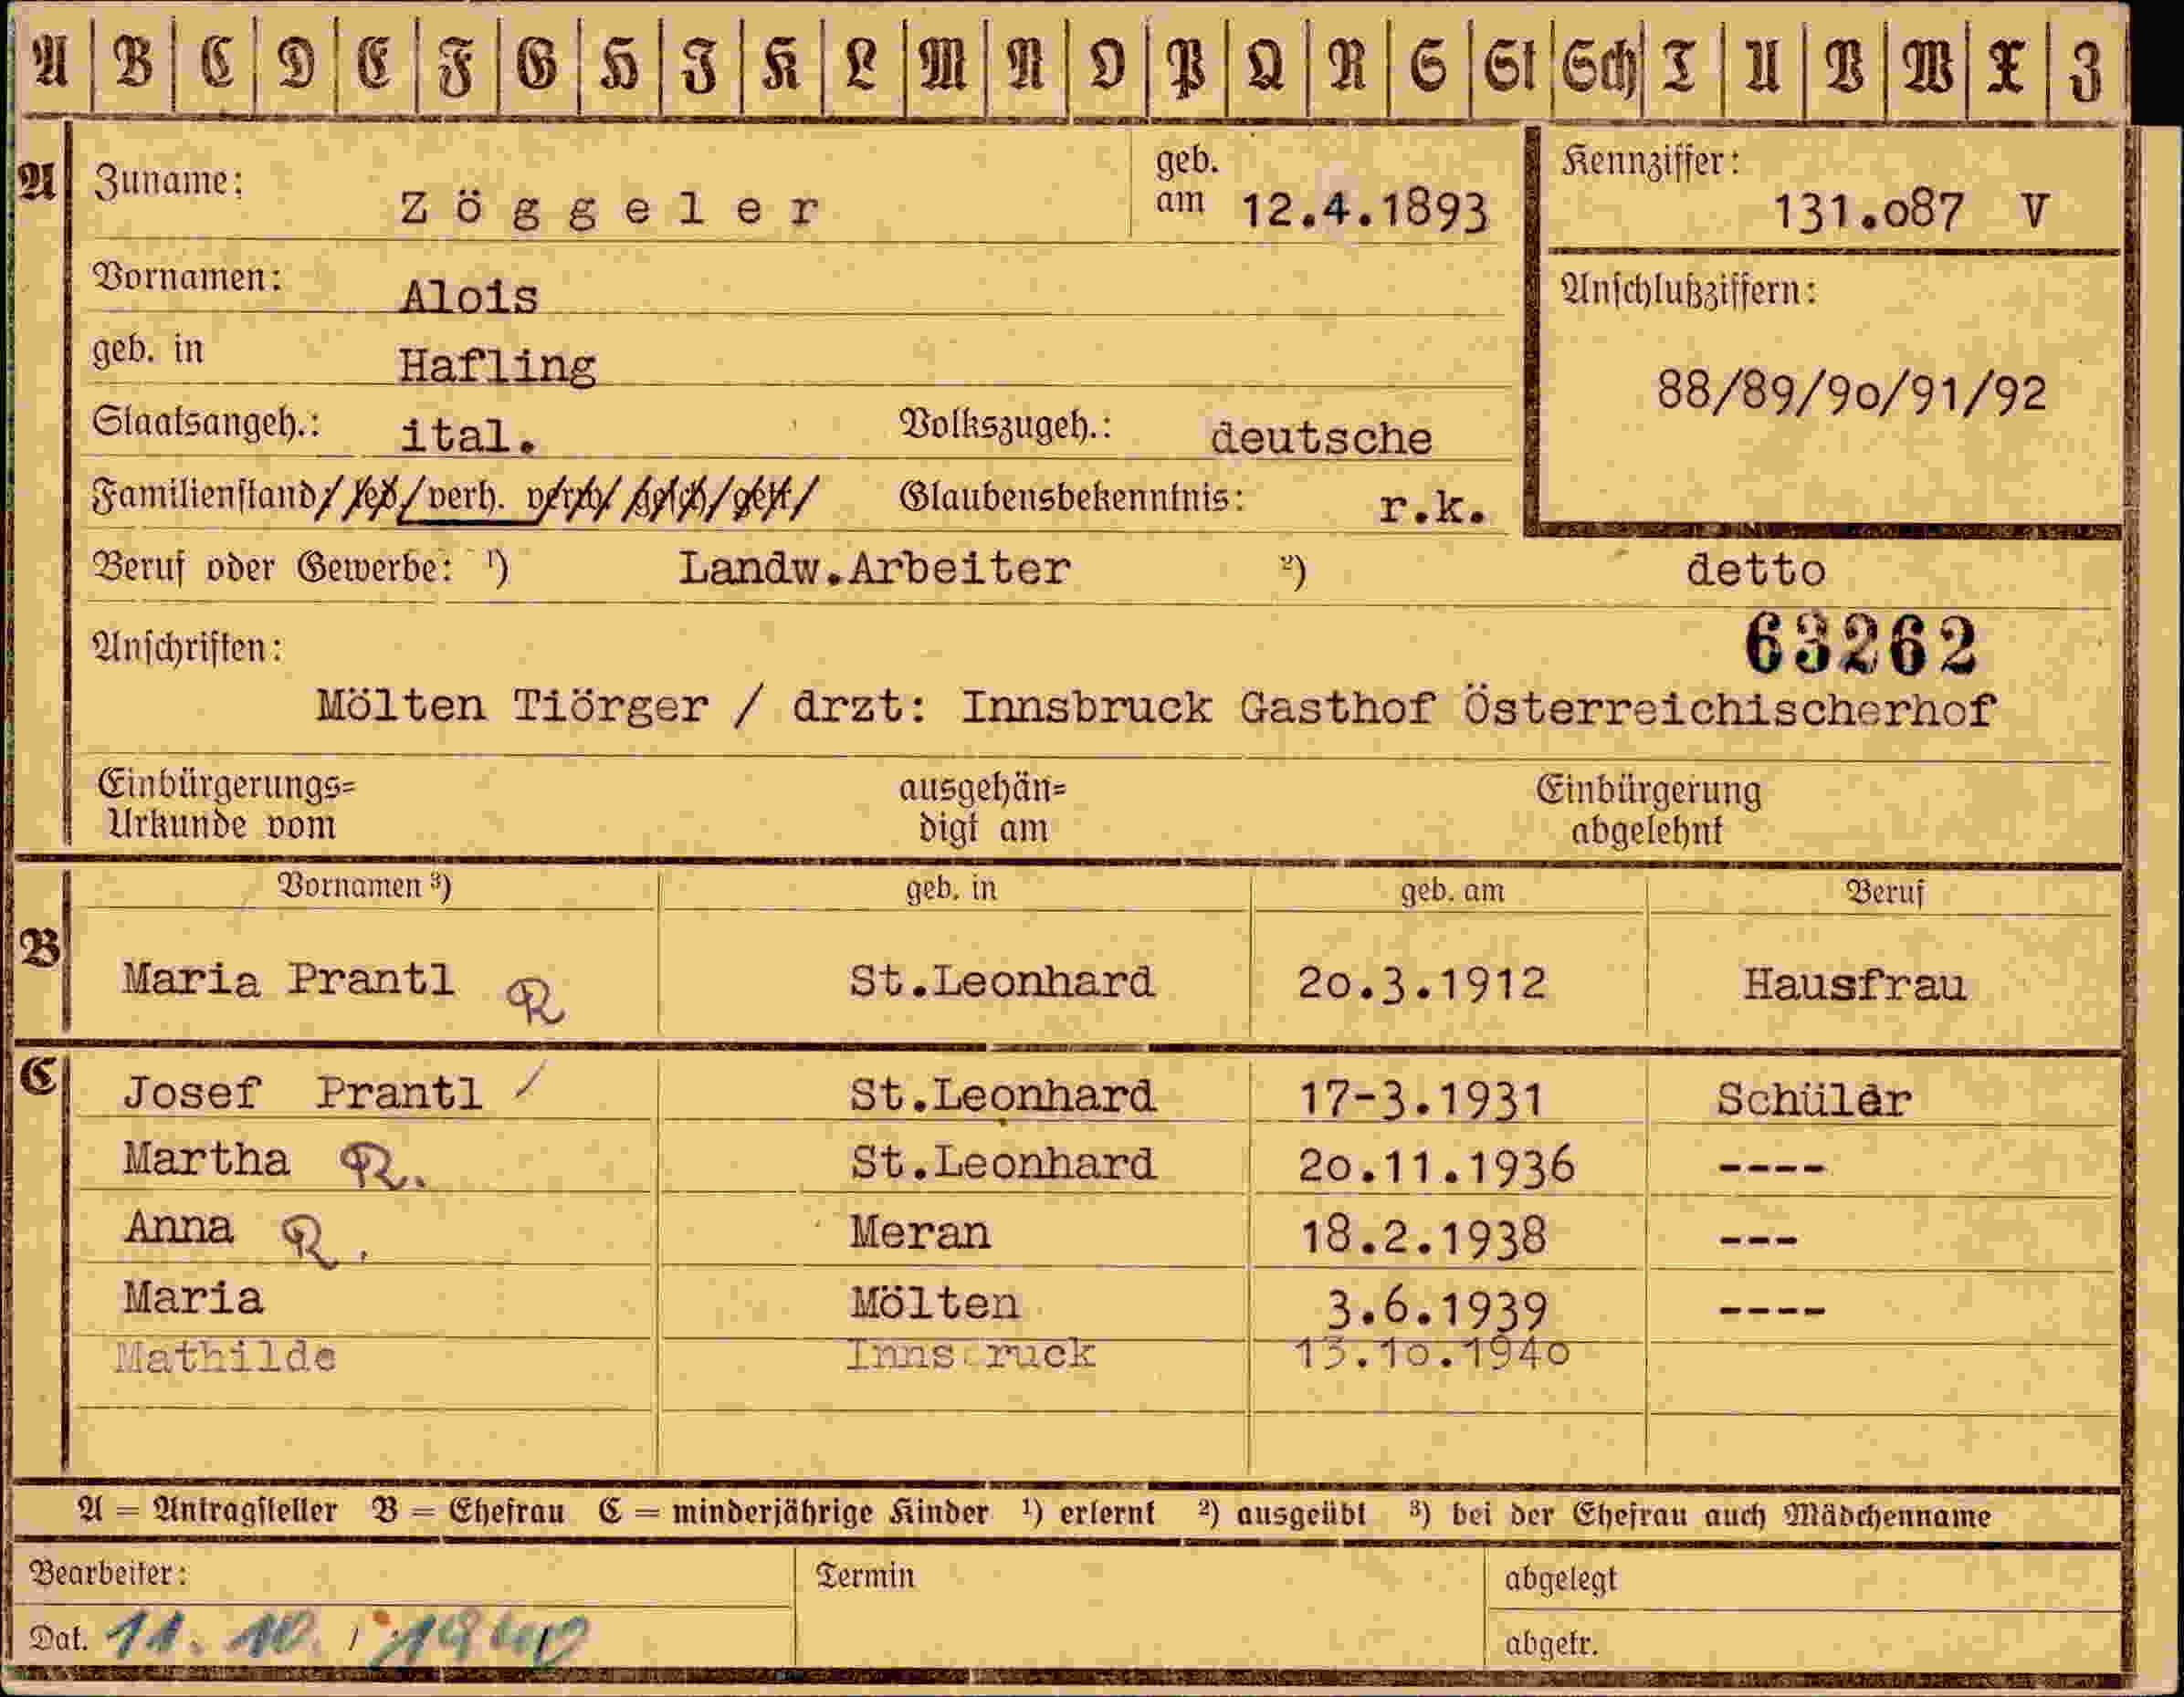 A B C D E F G H I K L M N O P Q R S St Sch T U V W X Z
A Zuname: Zöggeler geb. am 12.4.1893 Kennziffer: 131.087 V
Vornamen: Alois Anschlußziffern:
geb. in Hafling 88/89/90/91/92
Staatsangeh.: ital. Volkszugeh.: deutsche
Familienstand/ led/ verh. verw/ gesch/ getr/ Glaubensbekenntnis: r.k.
Beruf oder Gewerbe: ¹) Landw.Arbeiter ²) detto
Anschriften: 63262
Mölten Tiörger / drzt: Innsbruck Gasthof Österreichischerhof
Einbürgerungs= ausgehän= Einbürgerung
Urkunde vom digt am abgelehnt
Vornamen ³) geb. in geb. am Beruf
B Maria Prantl R St.Leonhard 20.3.1912 Hausfrau
C Josef Prantl / St.Leonhard 17-3.1931 Schüler
Martha R. St.Leonhard 20.11.1936 ----
Anna R. Meran 18.2.1938 ---
Maria Mölten 3.6.1939 ----
Mathilde Inns ruck 13.10.1940
A = Antragsteller B = Ehefrau C = minderjährige Kinder ¹) erlernt ²) ausgeübt ³) bei der Ehefrau auch Mädchenname
Bearbeiter: Termin abgelegt
Dat. 11. 10. 1940 abgetr.